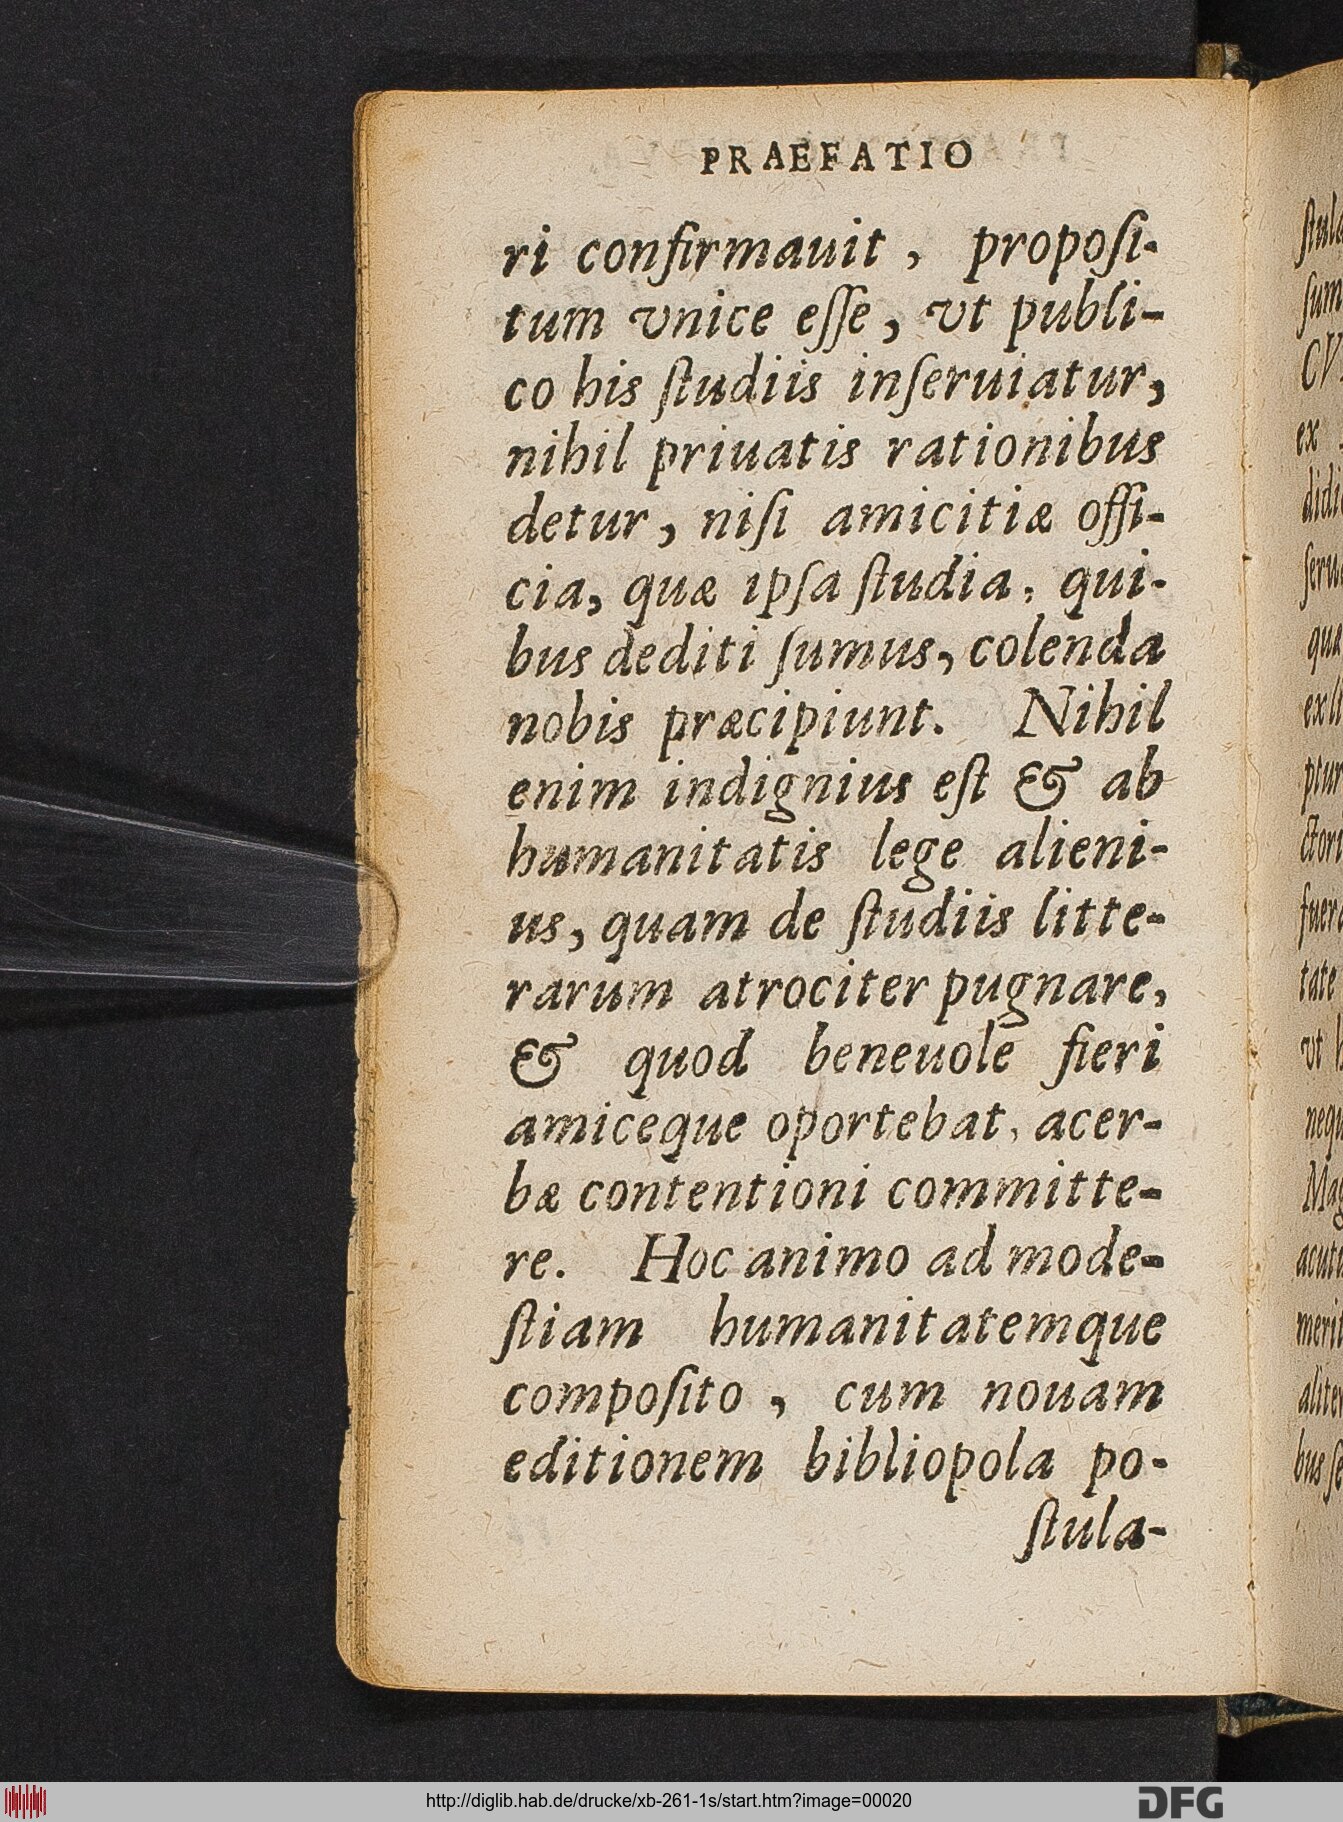 PRAEFATIO
ri confirmauit, propoſi-
tum vnice eſſe, vt publi-
co his ſtudiis inſeruiatur,
nihil priuatis rationibus
detur, niſi amicitiæ offi-
cia, quæ ipſa ſtudia, qui-
bus dediti ſumus, colenda
nobis præcipiunt. Nihil
enim indignius eſt & ab
humanitatis lege alieni-
us, quam de ſtudiis litte-
rarum atrociter pugnare,
& quod beneuole fieri
amiceque oportebat, acer-
bæ contentioni committe-
re. Hoc animo ad mode-
ſtiam humanitatemque
compoſito, cum nouam
editionem bibliopola po-
ſtula-
ex
tate
vt
http://diglib.hab.de/drucke/xb-261-1s/start.htm?image=00020
DFG